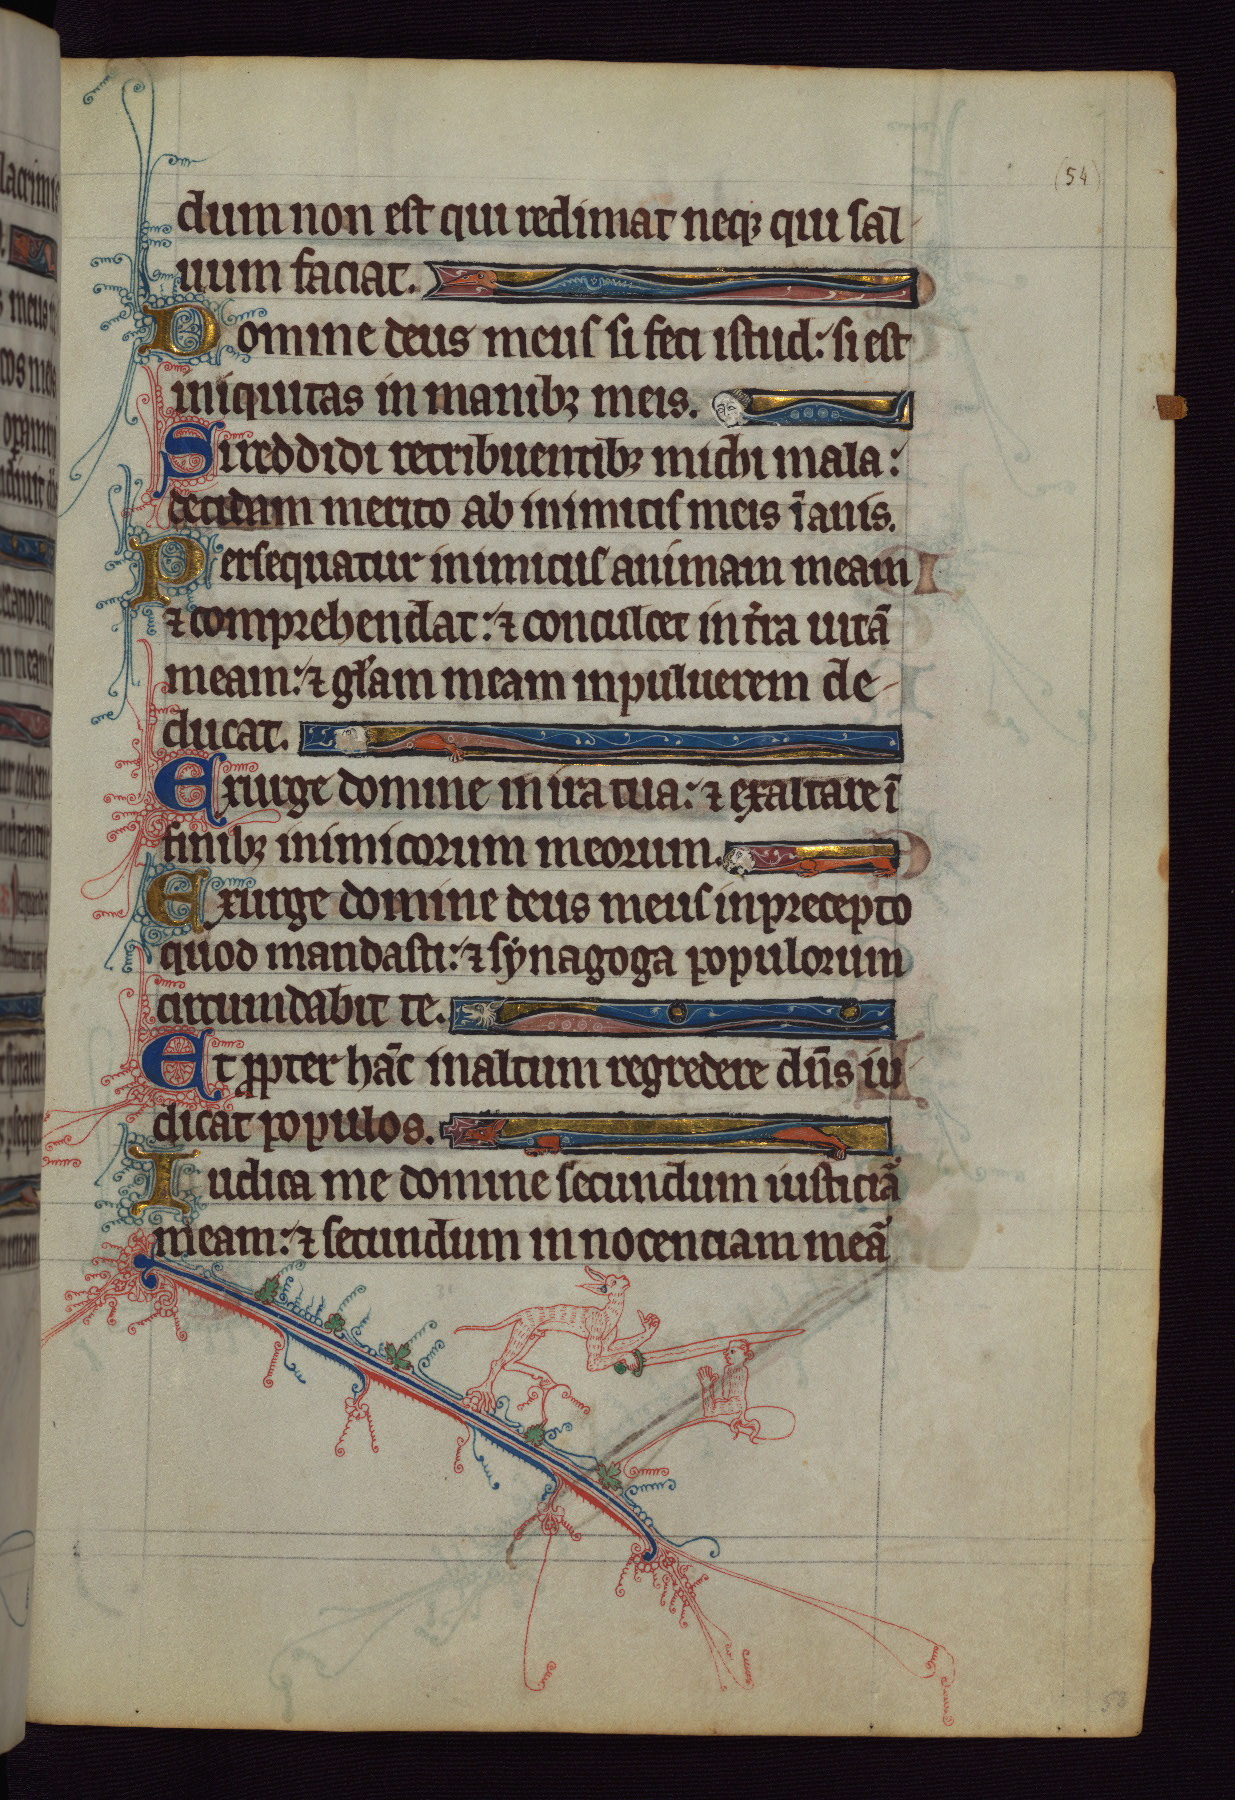 (54)
dum non est qui redimat neqꝫ qui sal
uum faciat.
Domine deus meus si feci istud: si est
iniquitas in manibꝫ meis.
Si reddidi retribuentibꝫ michi mala:
decidam merito ab inimicis meis īanis.
Persequatur inimicus animam meam
⁊ comprehendat: ⁊ conculcet in t̉ra uitā
meam: ⁊ gl̃am meam in puluerem de
ducat.
Exurge domine in ira tua: ⁊ exaltare ī
finibꝫ inimicorum meorum.
Exurge domine deus meus in precepto
quod mandasti: ⁊ synagoga populorum
circumdabit te.
Et ꝓpter hāc in altum regredere dn̄s iu
dicat populos.
Iudica me domine secundum iusticiā
meam: ⁊ secundum innocenciam meā